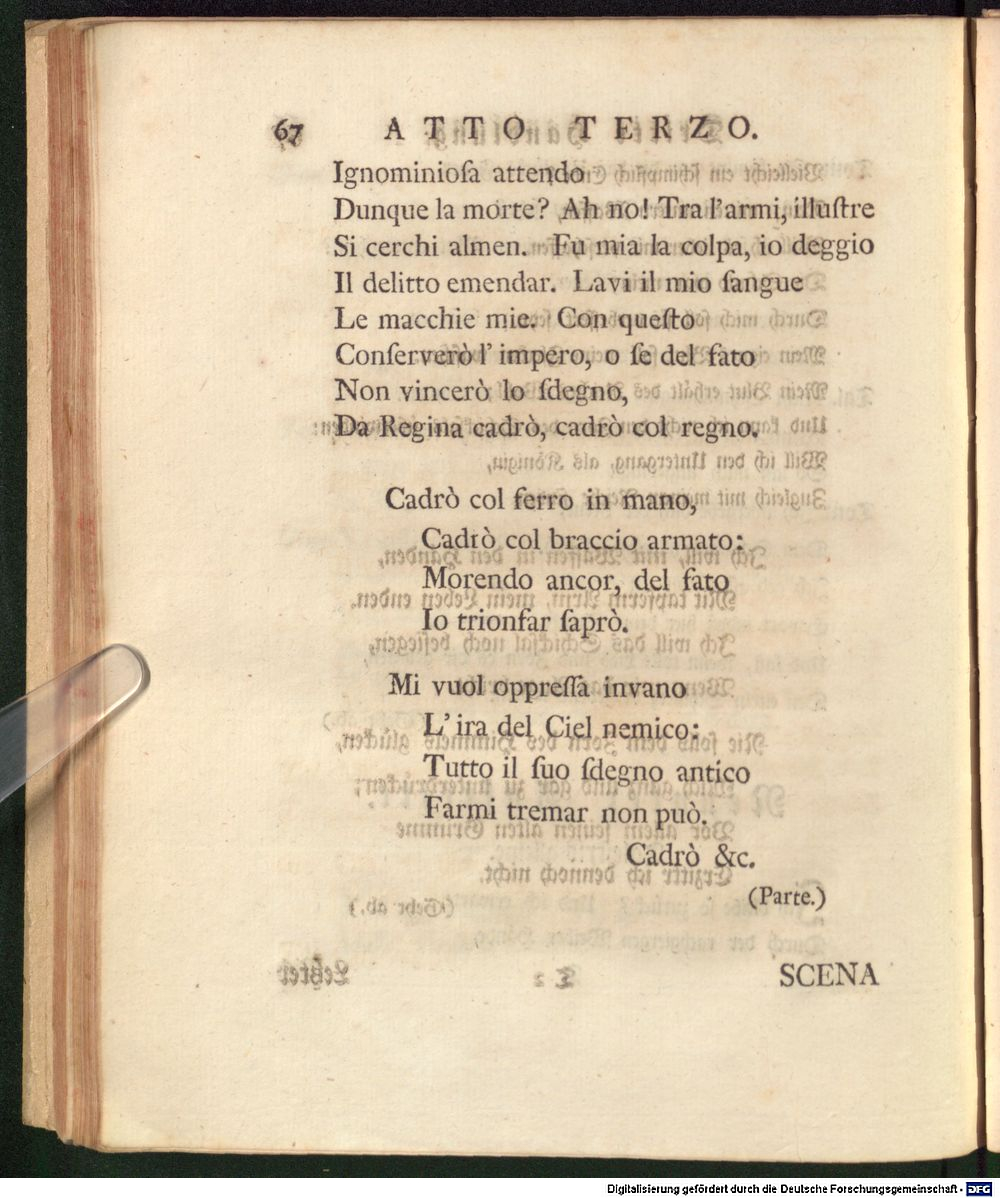 67 ATTO TERZO.
Ignominioſa attendo
Dunque la morte? Ah no! Tra l'armi, illuſtre
Si cerchi almen. Fu mia la colpa, io deggio
Il delitto emendar. Lavi il mio ſangue
Le macchie mie. Con queſto
Conſerverò l' impero, o ſe del fato
Non vincerò lo ſdegno,
Da Regina cadrò, cadrò col regno.
Cadrò col ferro in mano,
Cadrò col braccio armato:
Morendo ancor, del fato
Io trionfar ſaprò.
Mi vuol oppreſſa invano
L' ira del Ciel nemico:
Tutto il ſuo ſdegno antico
Farmi tremar non può.
Cadrò &c.
(Parte.)
SCENA
Digitalisierung gefördert durch die Deutsche Forschungsgemeinschaft - DFG